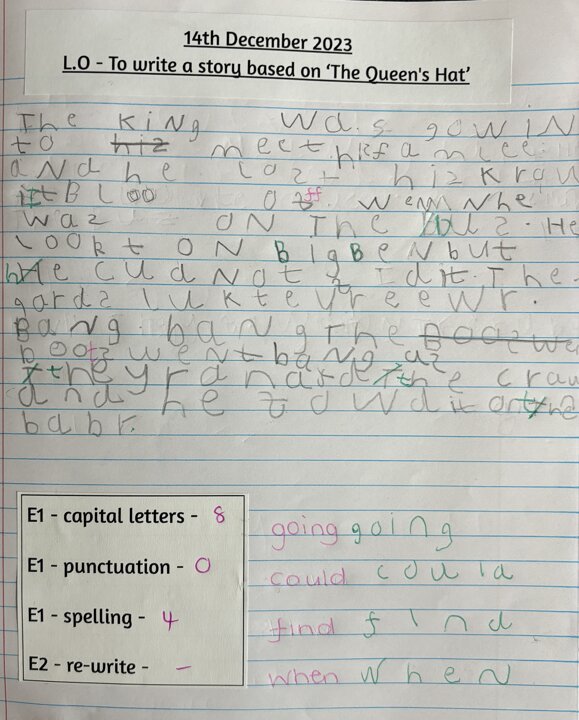 14th December 2023
L.O - To write a story based on 'The Queen's Hat'
The KiNg was gowiN
to hiz meet hisf a mice.
aNd he lozt hiz KraW
it BLOO off weNN he
waz ON The buz. He
lookt ON BigBeN but
He cud Not fidit. The
gardz luk tevreewr.
Bang baNg The Boozwe
bootz weNt baNg az
they raNard the craw
aNd he fowd it oN the
babr.
E1 - capital letters - 8
E1 - punctuation - 0
E1 - spelling - 4
E2 - re-write - –
going going
could could
find find
when wheN